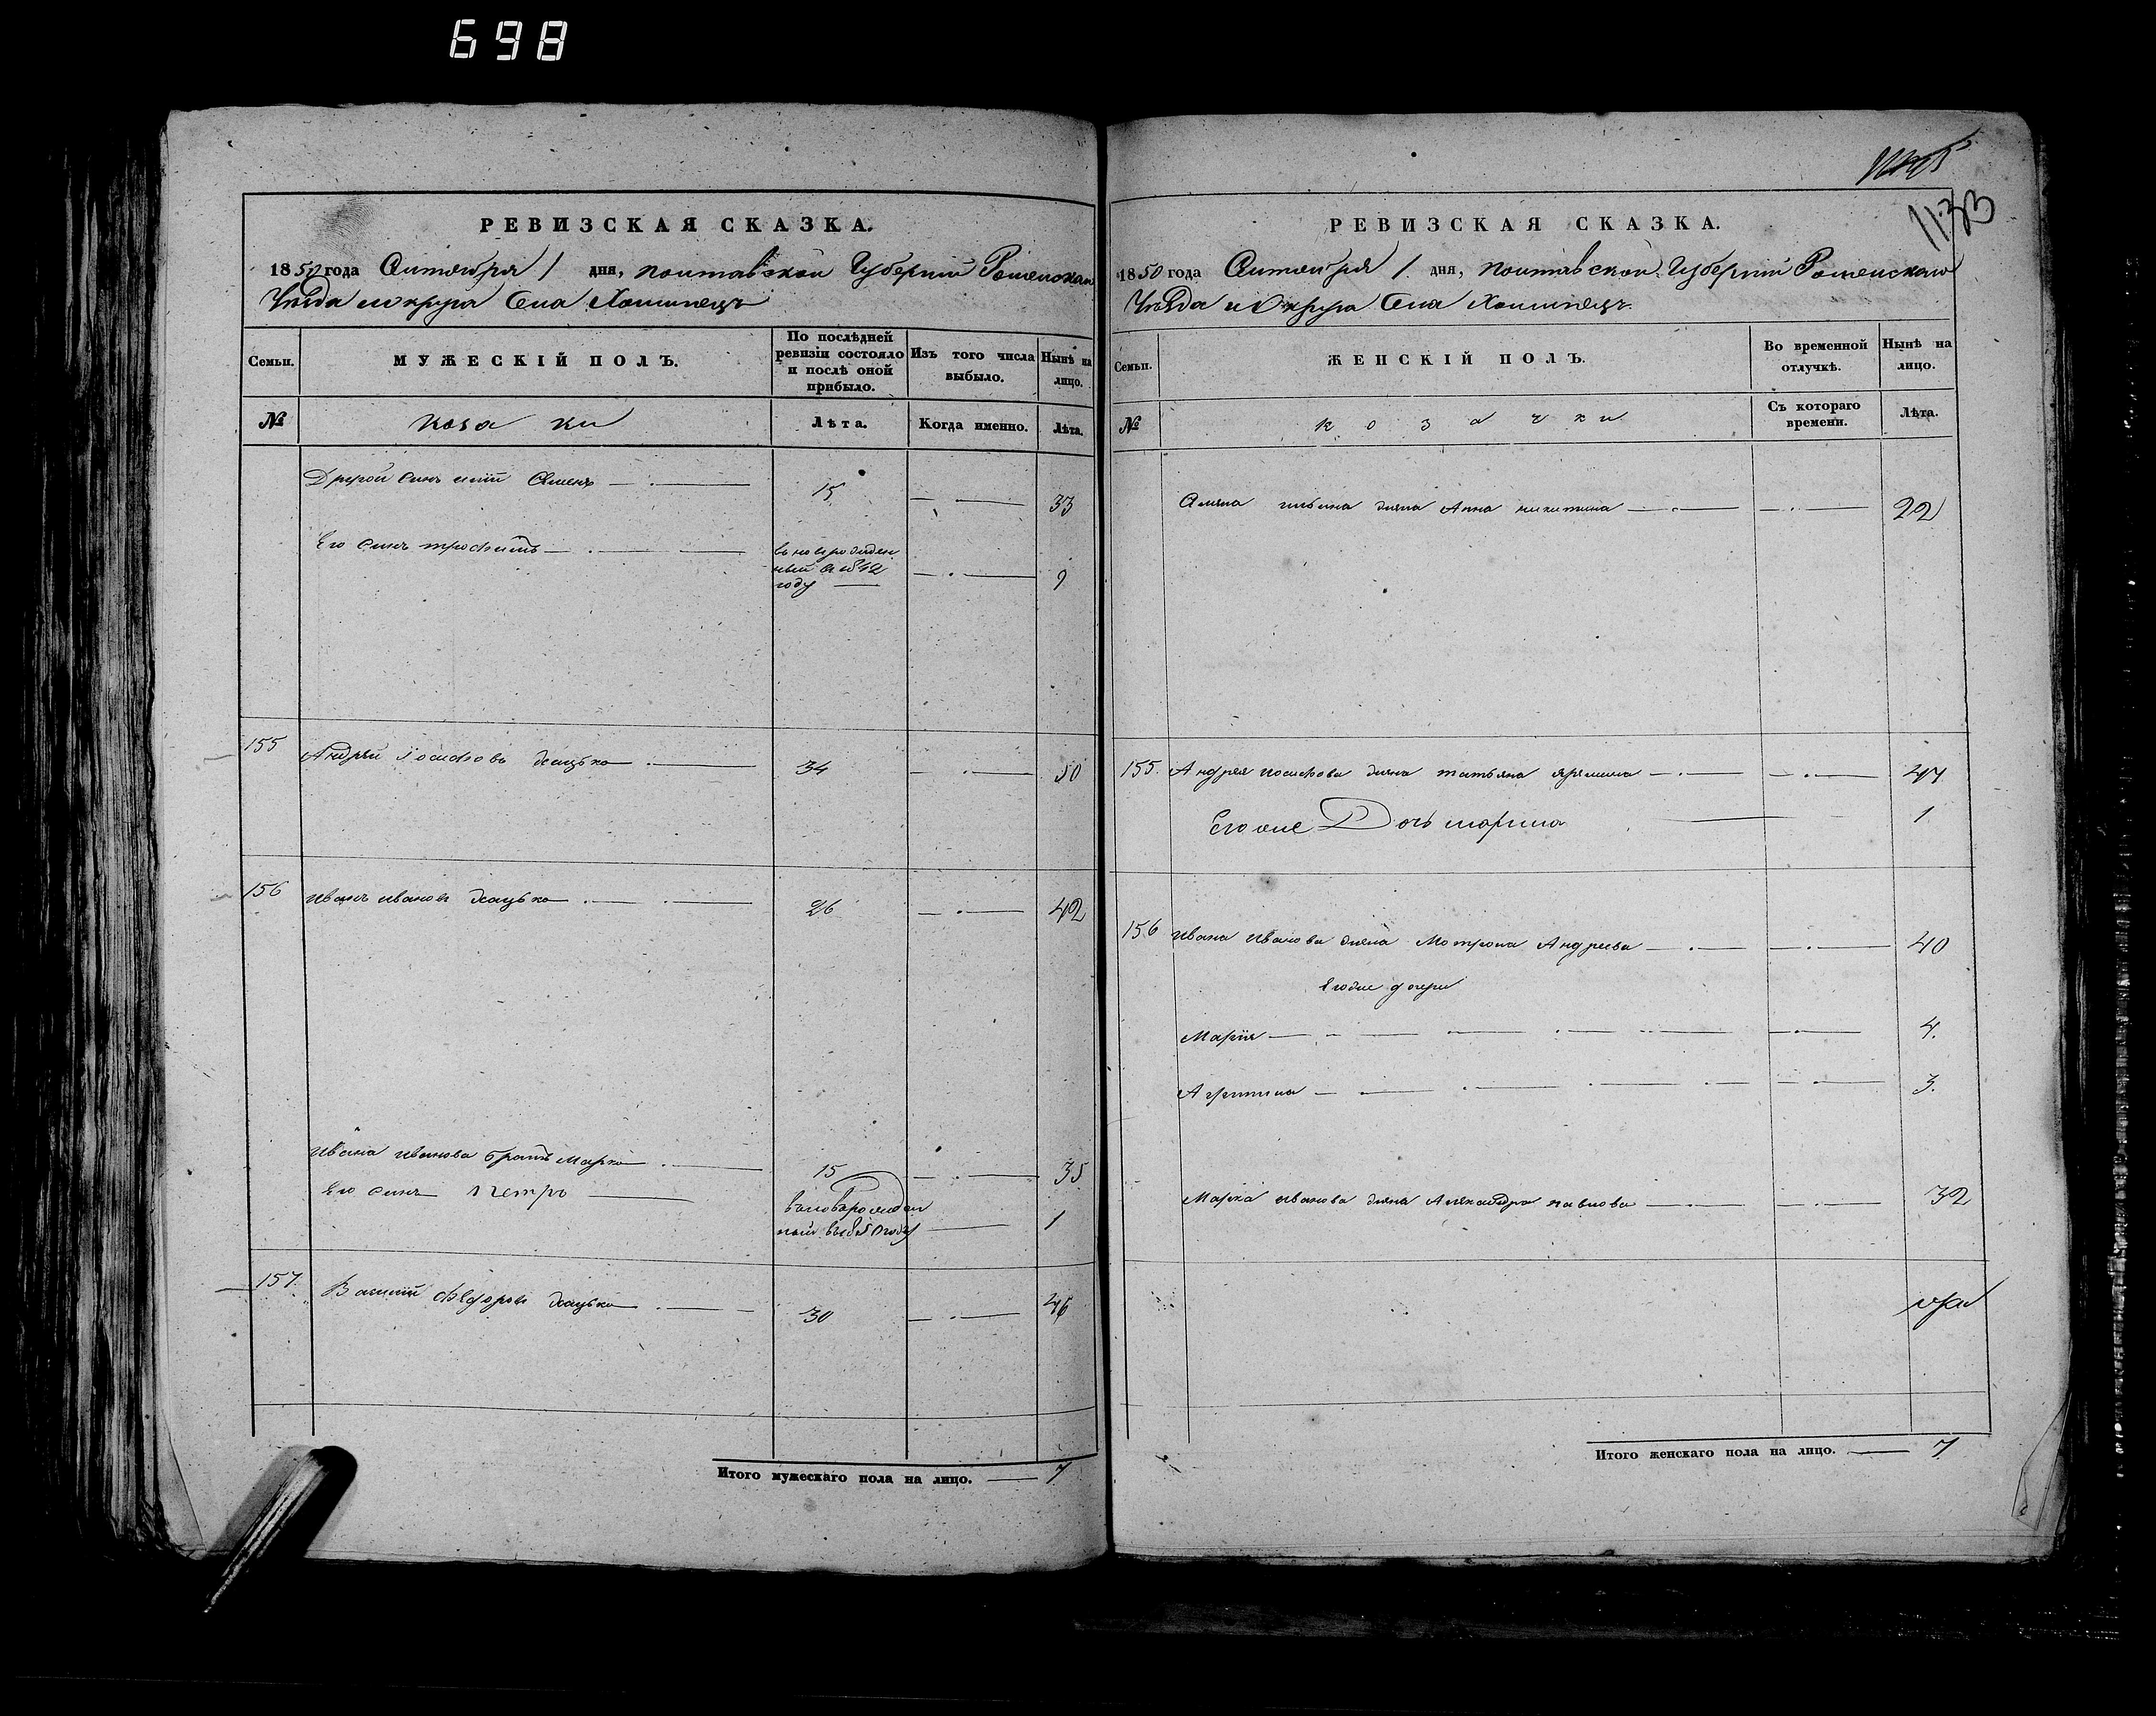 698
РЕВИЗСКАЯ СКАЗКА.
1850 года Октября 1 дня, полтавской Губернии Роменскаго
Уезда и округа Села
Семьи.
МУЖЕСКІЙ ПОЛЪ.
По послѣдней
ревизіи состояло
и послѣ оной
прибыло.
Изъ того числа
выбыло.
Нынѣ на
лицо.
№
коза ки
Лѣта.
Когда именно.
Лѣта.
Другой синъ Семенъ 15 33
Его синъ трофимъ
новорожден
ный
году 9
155 Андрей Іосифовъ 34 50
156 Иванъ Ивановъ 26 42
Ивана Иванова братъ Марко 15 35
Его синъ Петро
новорожден
ный 1
157. Василий Федоровъ 30 46
Итого мужескаго пола на лицо. 7
1133
РЕВИЗСКАЯ СКАЗКА.
1850 года Октября 1 дня, полтавской Губернии Роменскаго
Уезда и Округа Села
Семьи.
ЖЕНСКІЙ ПОЛЪ.
Во временной
отлучкѣ.
Нынѣ на
лицо.
№
козачки
Съ котораго
времени.
Лѣта.
Семена жена Анна никитина 22
155. Андрея иосифова жена татьяна 47
Его же Дочь марина 1
156 Ивана Иванова жена Мотрона Андреева 40
Его же дочери
Марія 4.
3.
Марка Иванова жена Александра павлова 32
Итого женскаго пола на лицо. 7